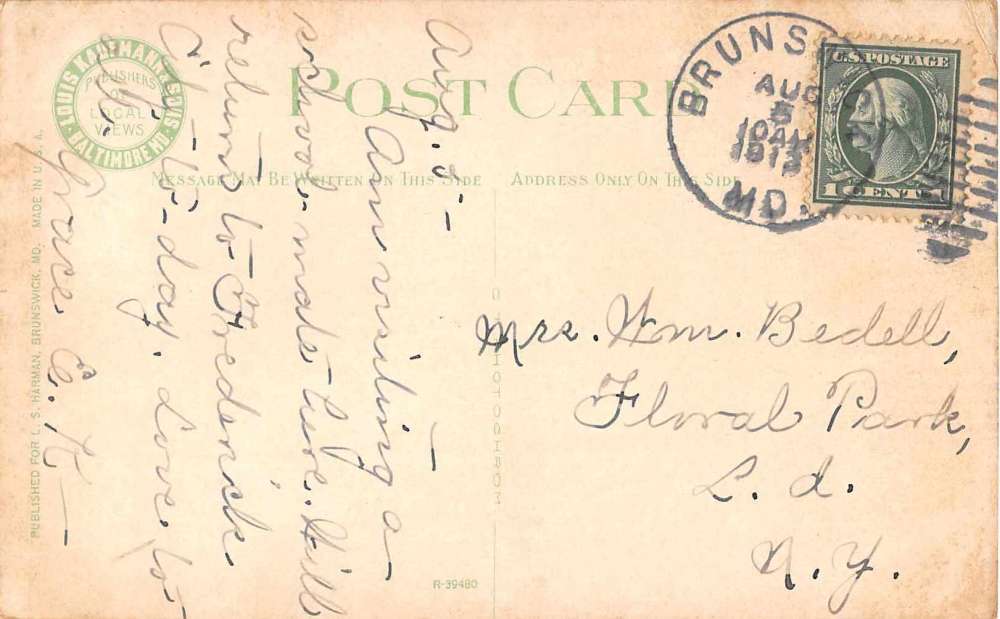 POST CARD
LOUIS KAUFMANN & SONS
BALTIMORE MD.
PUBLISHERS
OF
LOCAL
VIEWS
MESSAGE MAY BE WRITTEN ON THIS SIDE
ADDRESS ONLY ON THIS SIDE
BRUNS
AUG
5
10AM
1913
MD.
U.S. POSTAGE
1 CENT
Aug. 5-
Am visiting a-
school-mate here. Will
return to Frederick
to-day. Love to
all.
Grace E. K-
Mrs. Wm. Bedell,
Floral Park,
L. I.
N. Y.
PUBLISHED FOR L. S. HARMAN, BRUNSWICK, MD. MADE IN U. S. A.
R-39480